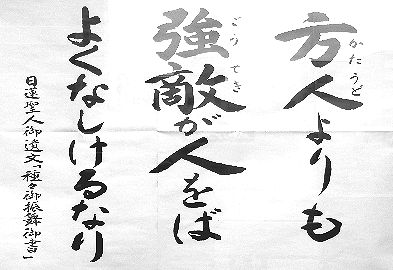 方人よりも
かたうど
強敵が人をば
ごうてき
よくなしけるなり
日蓮聖人御遺文「種々御振舞御書」